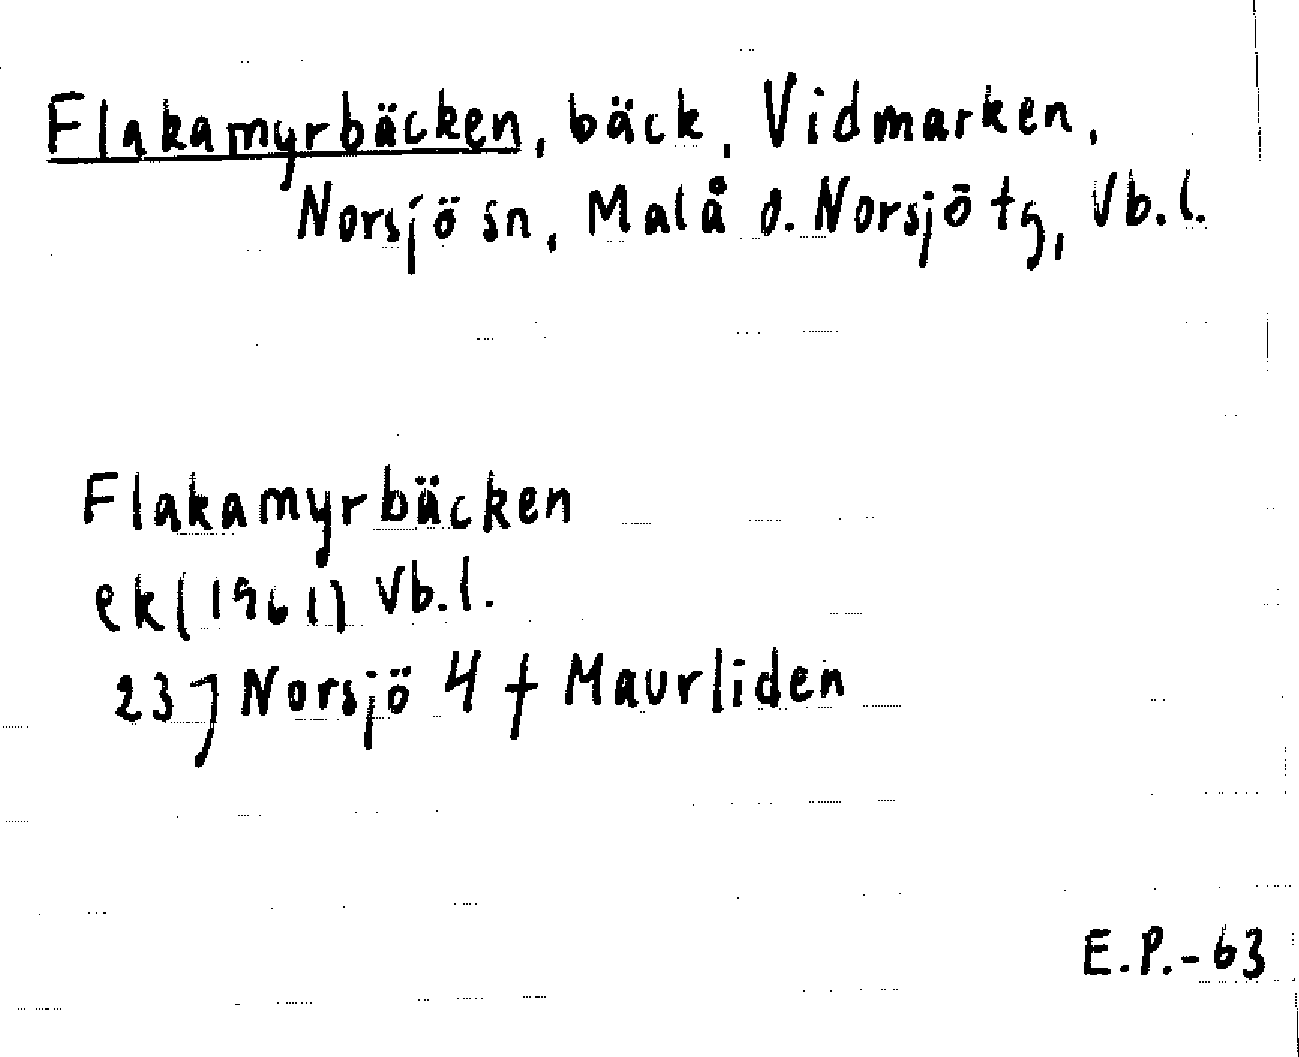 Flakamyrbäcken, bäck, Vidmarken,
Norsjö sn, Malå o. Norsjö tg, Vb.l.
Flakamyrbäcken
ek (1961) Vb.l.
23 J Norsjö 4 f Maurliden
E.P.-63